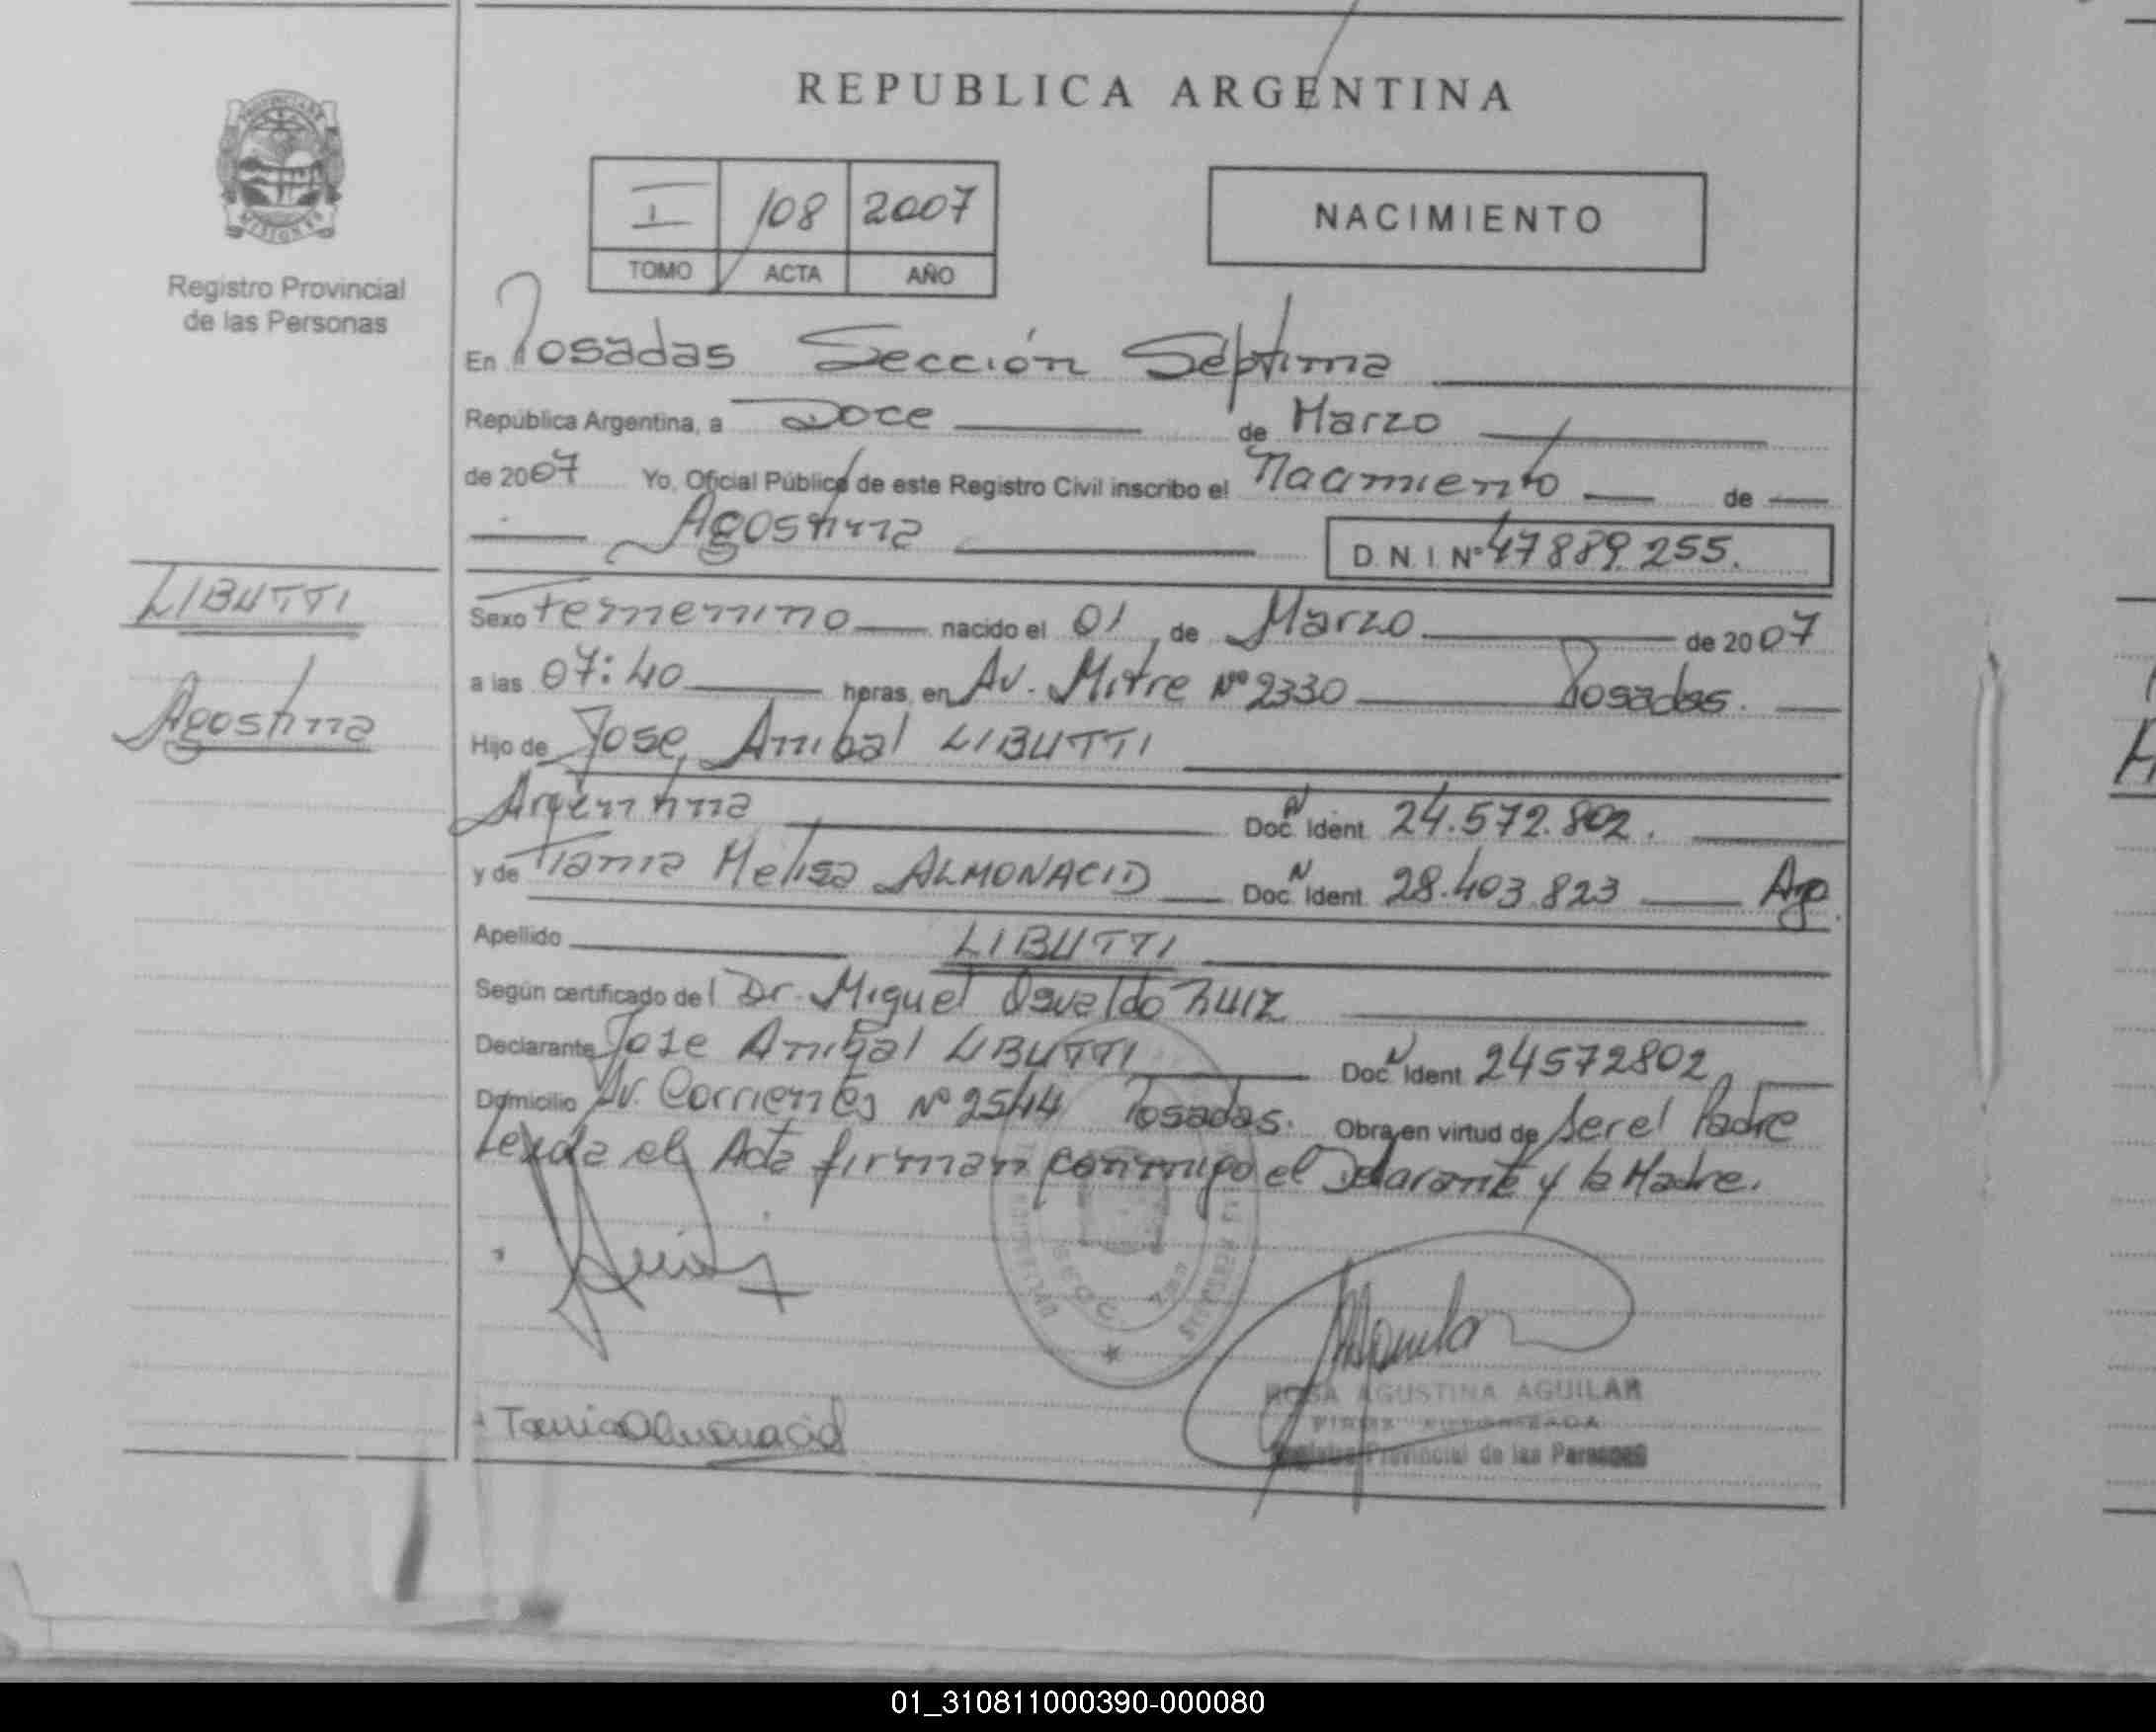 REPUBLICA ARGENTINA
PROVINCIA DE
MISIONES
Registro Provincial
de las Personas
I 108 2007
TOMO ACTA AÑO
NACIMIENTO
En Posadas Sección Séptima
República Argentina, a Doce de Marzo
de 2007 Yo, Oficial Público de este Registro Civil inscribo el Nacimiento de
Agostina D.N.I. Nº 47889.255.
LIBUTTI
Agostina
Sexo Femenino nacido el 01 de Marzo de 2007
a las 07:40 horas, en Av. Mitre Nº 2330 Posadas.
Hijo de Jose Anibal LIBUTTI
Argentina Doc. N Ident. 24.572.802.
y de Tania Melisa ALMONACID Doc. N Ident. 28.403.823 Arg
Apellido LIBUTTI
Según certificado del Dr. Miguel Osvaldo RUIZ
Declarante Jose Anibal LIBUTTI Doc. N Ident. 24572802
Domicilio Av. Corrientes Nº 2544 Posadas. Obra en virtud de Ser el Padre
Leyda el Acta firman conmigo el Delarante y la Madre.
Tania Almonacid
ROSA AGUSTINA AGUILAR
FIRMA AUTORIZADA
Registro Provincial de las Personas
01_310811000390-000080